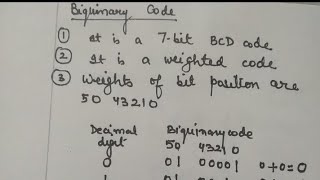 Biquinary Code
① It is a 7-bit BCD code
② It is a weighted code
③ Weights of bit position are
50 43210
Decimal digit Biquinary code
50 43210
0 01 00001 0+0=0